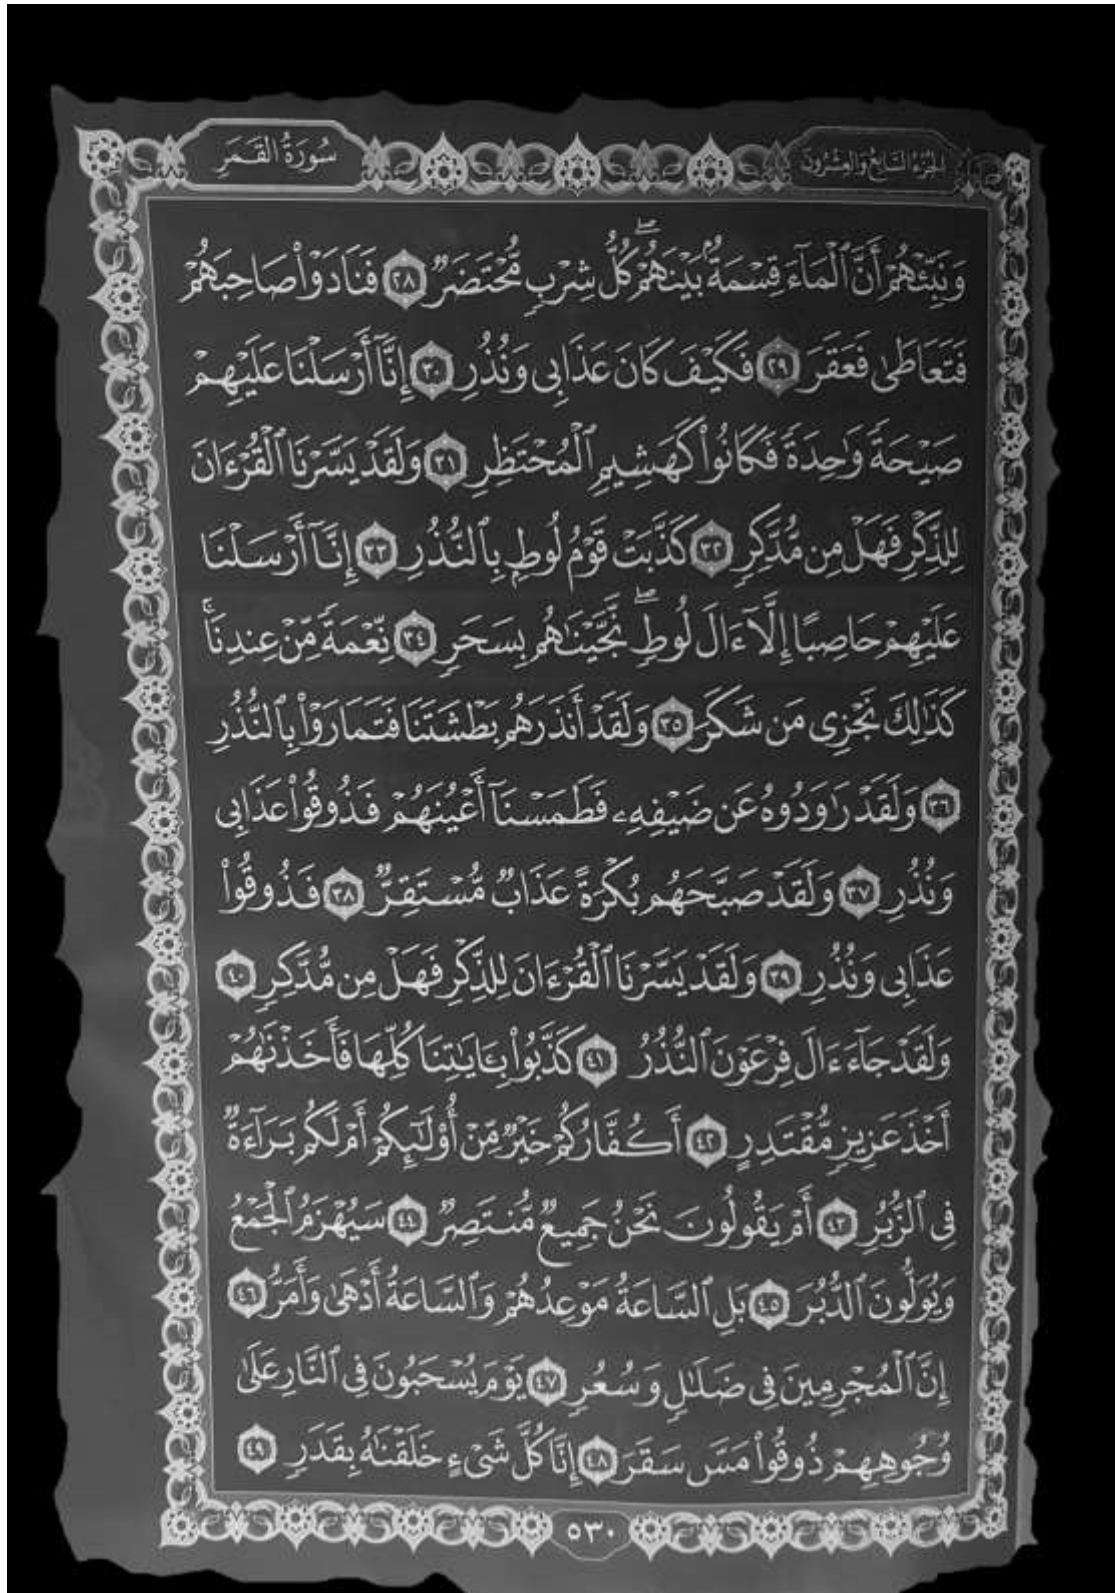 الجزء السابع والعشرون
سُورَةُ الْقَمَرِ
وَنَبِّئْهُمْ أَنَّ ٱلْمَآءَ قِسْمَةٌۢ بَيْنَهُمْۖ كُلُّ شِرْبٍ مُّحْتَضَرٌ ٢٨ فَنَادَوْا۟ صَاحِبَهُمْ
فَتَعَاطَىٰ فَعَقَرَ ٢٩ فَكَيْفَ كَانَ عَذَابِى وَنُذُرِ ٣٠ إِنَّآ أَرْسَلْنَا عَلَيْهِمْ
صَيْحَةً وَٰحِدَةً فَكَانُوا۟ كَهَشِيمِ ٱلْمُحْتَظِرِ ٣١ وَلَقَدْ يَسَّرْنَا ٱلْقُرْءَانَ
لِلذِّكْرِ فَهَلْ مِن مُّدَّكِرٍ ٣٢ كَذَّبَتْ قَوْمُ لُوطٍۭ بِٱلنُّذُرِ ٣٣ إِنَّآ أَرْسَلْنَا
عَلَيْهِمْ حَاصِبًا إِلَّآ ءَالَ لُوطٍۖ نَّجَّيْنَٰهُم بِسَحَرٍ ٣٤ نِّعْمَةً مِّنْ عِندِنَاۚ
كَذَٰلِكَ نَجْزِى مَن شَكَرَ ٣٥ وَلَقَدْ أَنذَرَهُم بَطْشَتَنَا فَتَمَارَوْا۟ بِٱلنُّذُرِ
٣٦ وَلَقَدْ رَٰوَدُوهُ عَن ضَيْفِهِۦ فَطَمَسْنَآ أَعْيُنَهُمْ فَذُوقُوا۟ عَذَابِى
وَنُذُرِ ٣٧ وَلَقَدْ صَبَّحَهُم بُكْرَةً عَذَابٌ مُّسْتَقِرٌّ ٣٨ فَذُوقُوا۟
عَذَابِى وَنُذُرِ ٣٩ وَلَقَدْ يَسَّرْنَا ٱلْقُرْءَانَ لِلذِّكْرِ فَهَلْ مِن مُّدَّكِرٍ ٤٠
وَلَقَدْ جَآءَ ءَالَ فِرْعَوْنَ ٱلنُّذُرُ ٤١ كَذَّبُوا۟ بِـَٔايَٰتِنَا كُلِّهَا فَأَخَذْنَٰهُمْ
أَخْذَ عَزِيزٍ مُّقْتَدِرٍ ٤٢ أَكُفَّارُكُمْ خَيْرٌ مِّنْ أُو۟لَٰٓئِكُمْ أَمْ لَكُم بَرَآءَةٌ
فِى ٱلزُّبُرِ ٤٣ أَمْ يَقُولُونَ نَحْنُ جَمِيعٌ مُّنتَصِرٌ ٤٤ سَيُهْزَمُ ٱلْجَمْعُ
وَيُوَلُّونَ ٱلدُّبُرَ ٤٥ بَلِ ٱلسَّاعَةُ مَوْعِدُهُمْ وَٱلسَّاعَةُ أَدْهَىٰ وَأَمَرُّ ٤٦
إِنَّ ٱلْمُجْرِمِينَ فِى ضَلَٰلٍ وَسُعُرٍ ٤٧ يَوْمَ يُسْحَبُونَ فِى ٱلنَّارِ عَلَىٰ
وُجُوهِهِمْ ذُوقُوا۟ مَسَّ سَقَرَ ٤٨ إِنَّا كُلَّ شَىْءٍ خَلَقْنَٰهُ بِقَدَرٍ ٤٩
٥٣٠